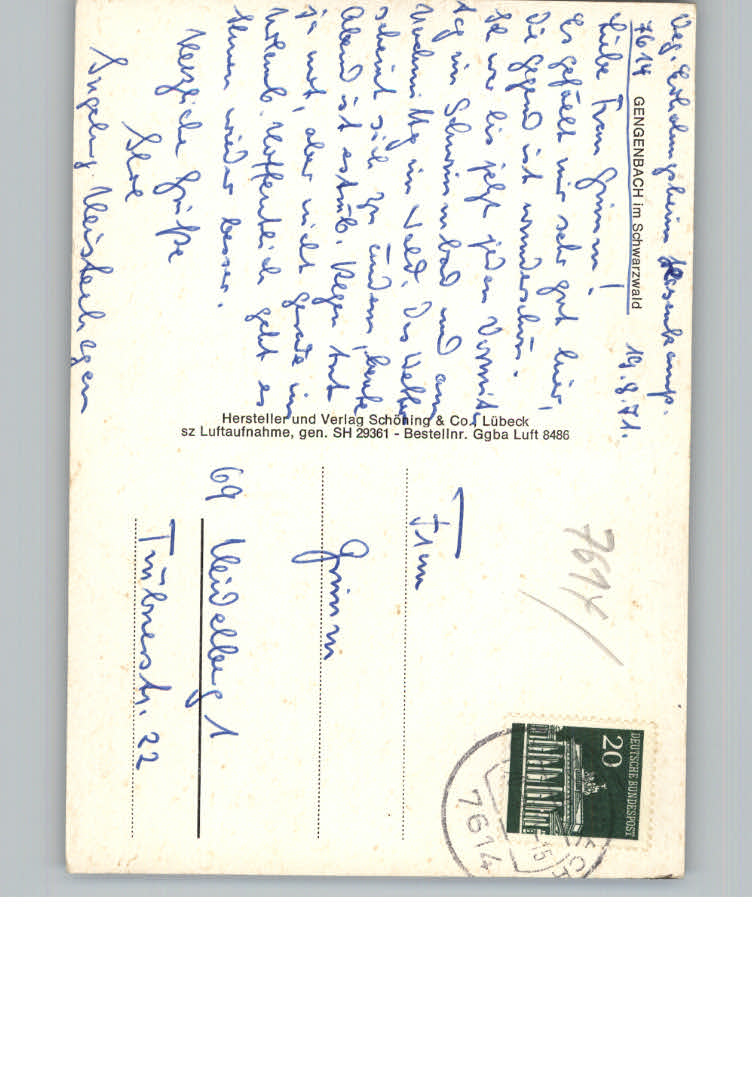 Veg. Erholungsheim Hasenkamp.
7614 GENGENBACH im Schwarzwald
19.8.71.
Liebe Frau Grimm!
Es gefällt mir sehr gut hier,
die Gegend ist wunderschön.
Ich war bis jetzt jeden Vormit-
tag im Schwimmbad und am
Nachmittag im Wald. Das Wetter
scheint sich zu ändern, heute
Abend ist es trüb. Regen tut
ja not, aber nicht gerade im
Urlaub. Hoffentlich geht es
Ihnen wieder besser.
Herzliche Grüße
Ihre
Hersteller und Verlag Schöning & Co., Lübeck
sz Luftaufnahme, gen. SH 29361 - Bestellnr. Ggba Luft 8486
7614/
DEUTSCHE BUNDESPOST
20
7614
-15
Frau
Grimm
69 Heidelberg 1
Trübnerstr. 22